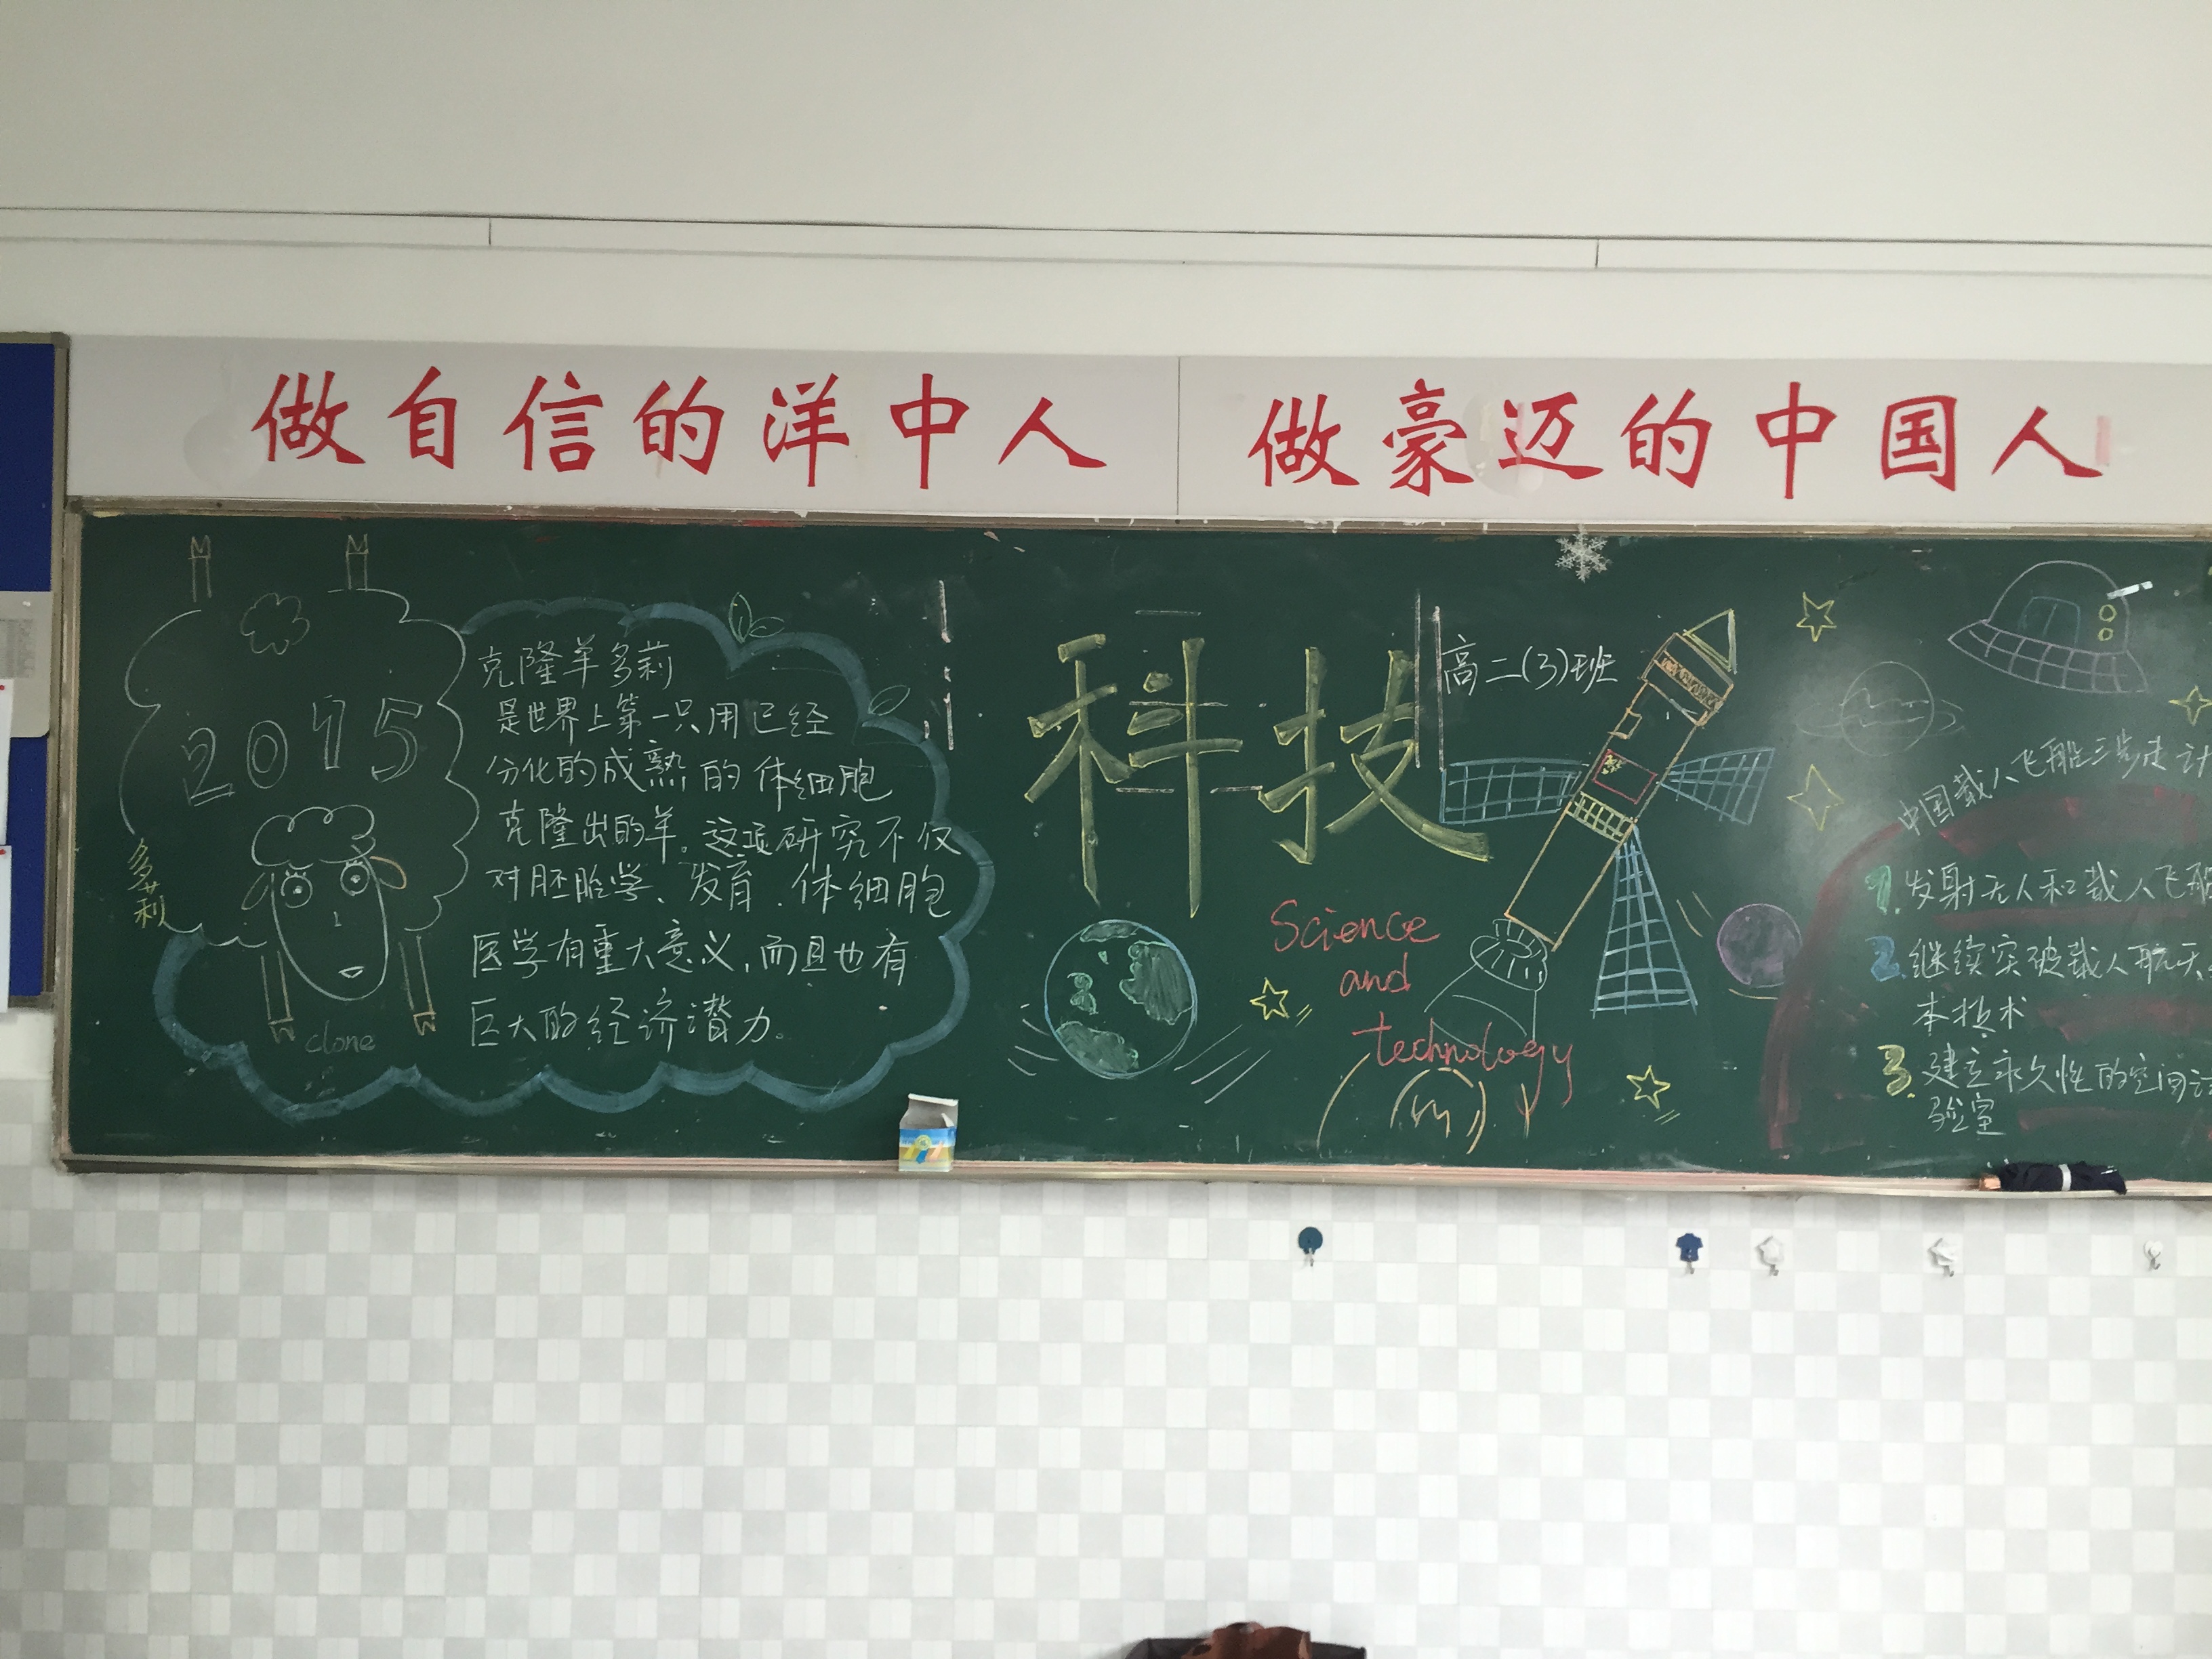 做自信的洋中人
做豪迈的中国人
2015
多莉
clone
克隆羊多莉
是世界上第一只用已经
分化的成熟的体细胞
克隆出的羊。这项研究不仅
对胚胎学、发育、体细胞
医学有重大意义,而且也有
巨大的经济潜力。
科技
高二(3)班
Science
and
technology
中国载人飞船三步走计
1.发射无人和载人飞船
2.继续突破载人航天
本技术
3.建立永久性的空间
验室